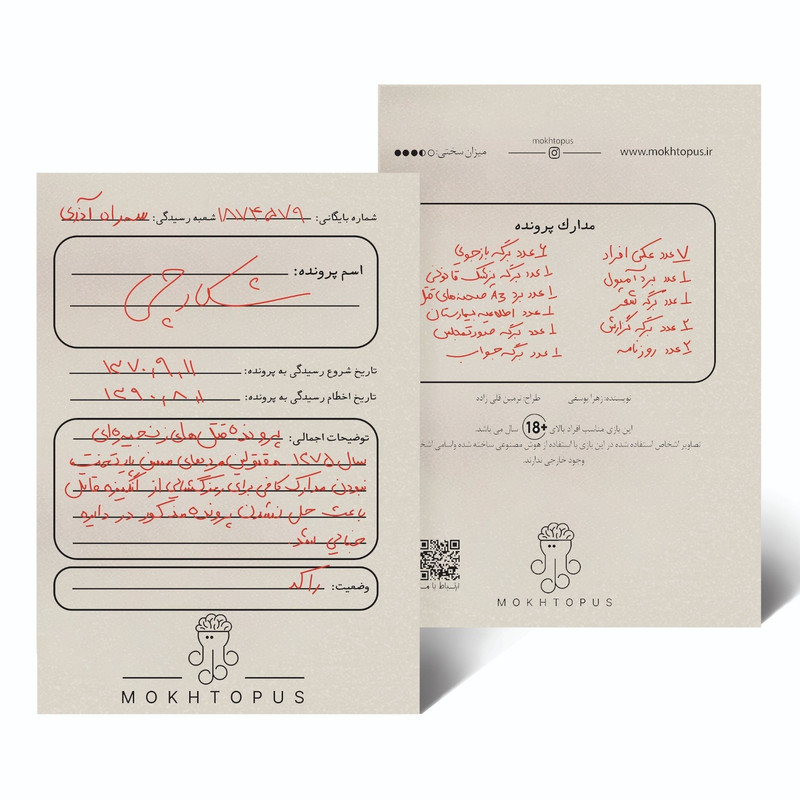 شماره بایگانی: ۱۸۷۴۵۷۹ شعبه رسیدگی: سمران آذری
اسم پرونده:
شکارچی
تاریخ شروع رسیدگی به پرونده: ۱۳۷۰,۹,۱۱
تاریخ اختام رسیدگی به پرونده: ۱۳۹۰,۸,۱۱
توضیحات اجمالی: پرونده قتل های زنجیره ای
سال ۱۲۷۵ مقتولین مردهای مسن پایتخت
نبودن مدارک کافی برای رمزگشایی از انگیزه قاتل
باعث حل نشدن پرونده مذکور در دایره
جنایی
وضعیت: راکد
MOKHTOPUS
www.mokhtopus.ir
mokhtopus
میزان سختی:
مدارك پرونده
۷ عدد عکس افراد
۱ عدد برد آمپول
۱ عدد برگه شعر
۲ عدد برگه گزارش
۲ عدد روزنامه
۶ عدد برگه بازجویی
۱ عدد برگه پزشک قانونی
۱ عدد برد A3 صحنه های
۱ عدد اطلاعیه بیمارستان
۱ عدد برگه صورتمجلس
۱ عدد برگه جواب
نویسنده: زهرا یوسفی طراح: نرمین قلی زاده
این بازی مناسب افراد بالای +18 سال می باشد.
تصاویر اشخاص استفاده شده در این بازی با استفاده از هوش مصنوعی ساخته شده واسامی
وجود خارجی ندارند.
ارتباط با
MOKHTOPUS